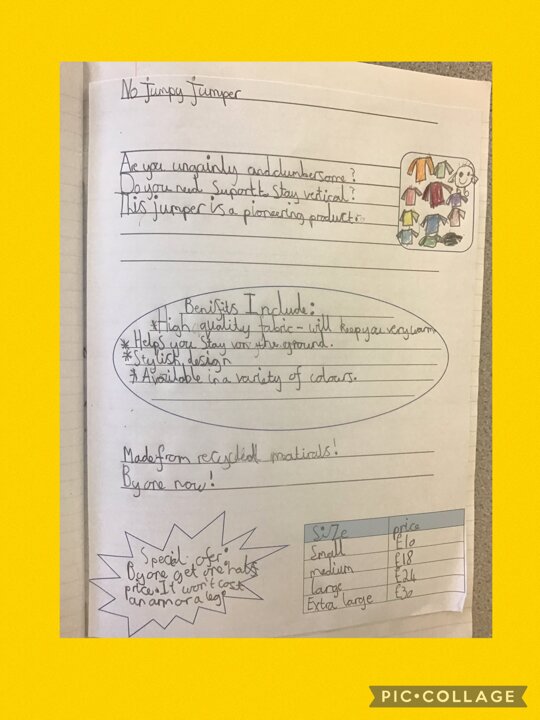 No jumpy jumper
Are you ungainly and clumbersome?
Do you need Suport to Stay vertical?
This jumper is a pioneering product.
Benifits Include:
*High quality fabric - will keep you very warm
* Helps you stay on the ground.
* Stylish design
* Available in a variety of colours.
Made from recycled matirals!
By one now!
Special ofer:
By one get one half
price. It won't cost
an arm or a leg!
Size price
Small £10
medium £18
large £24
Extra large £30
PIC•COLLAGE